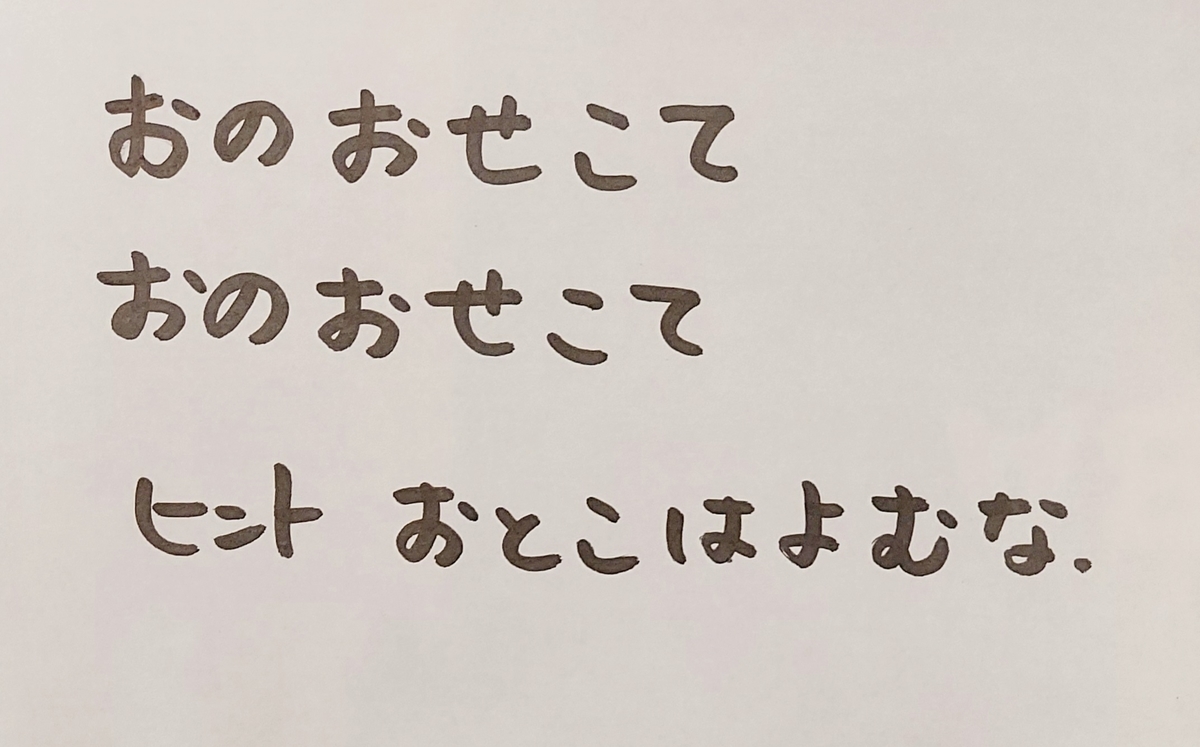 おのおせこて
おのおせこて
ヒント おとこはよむな.